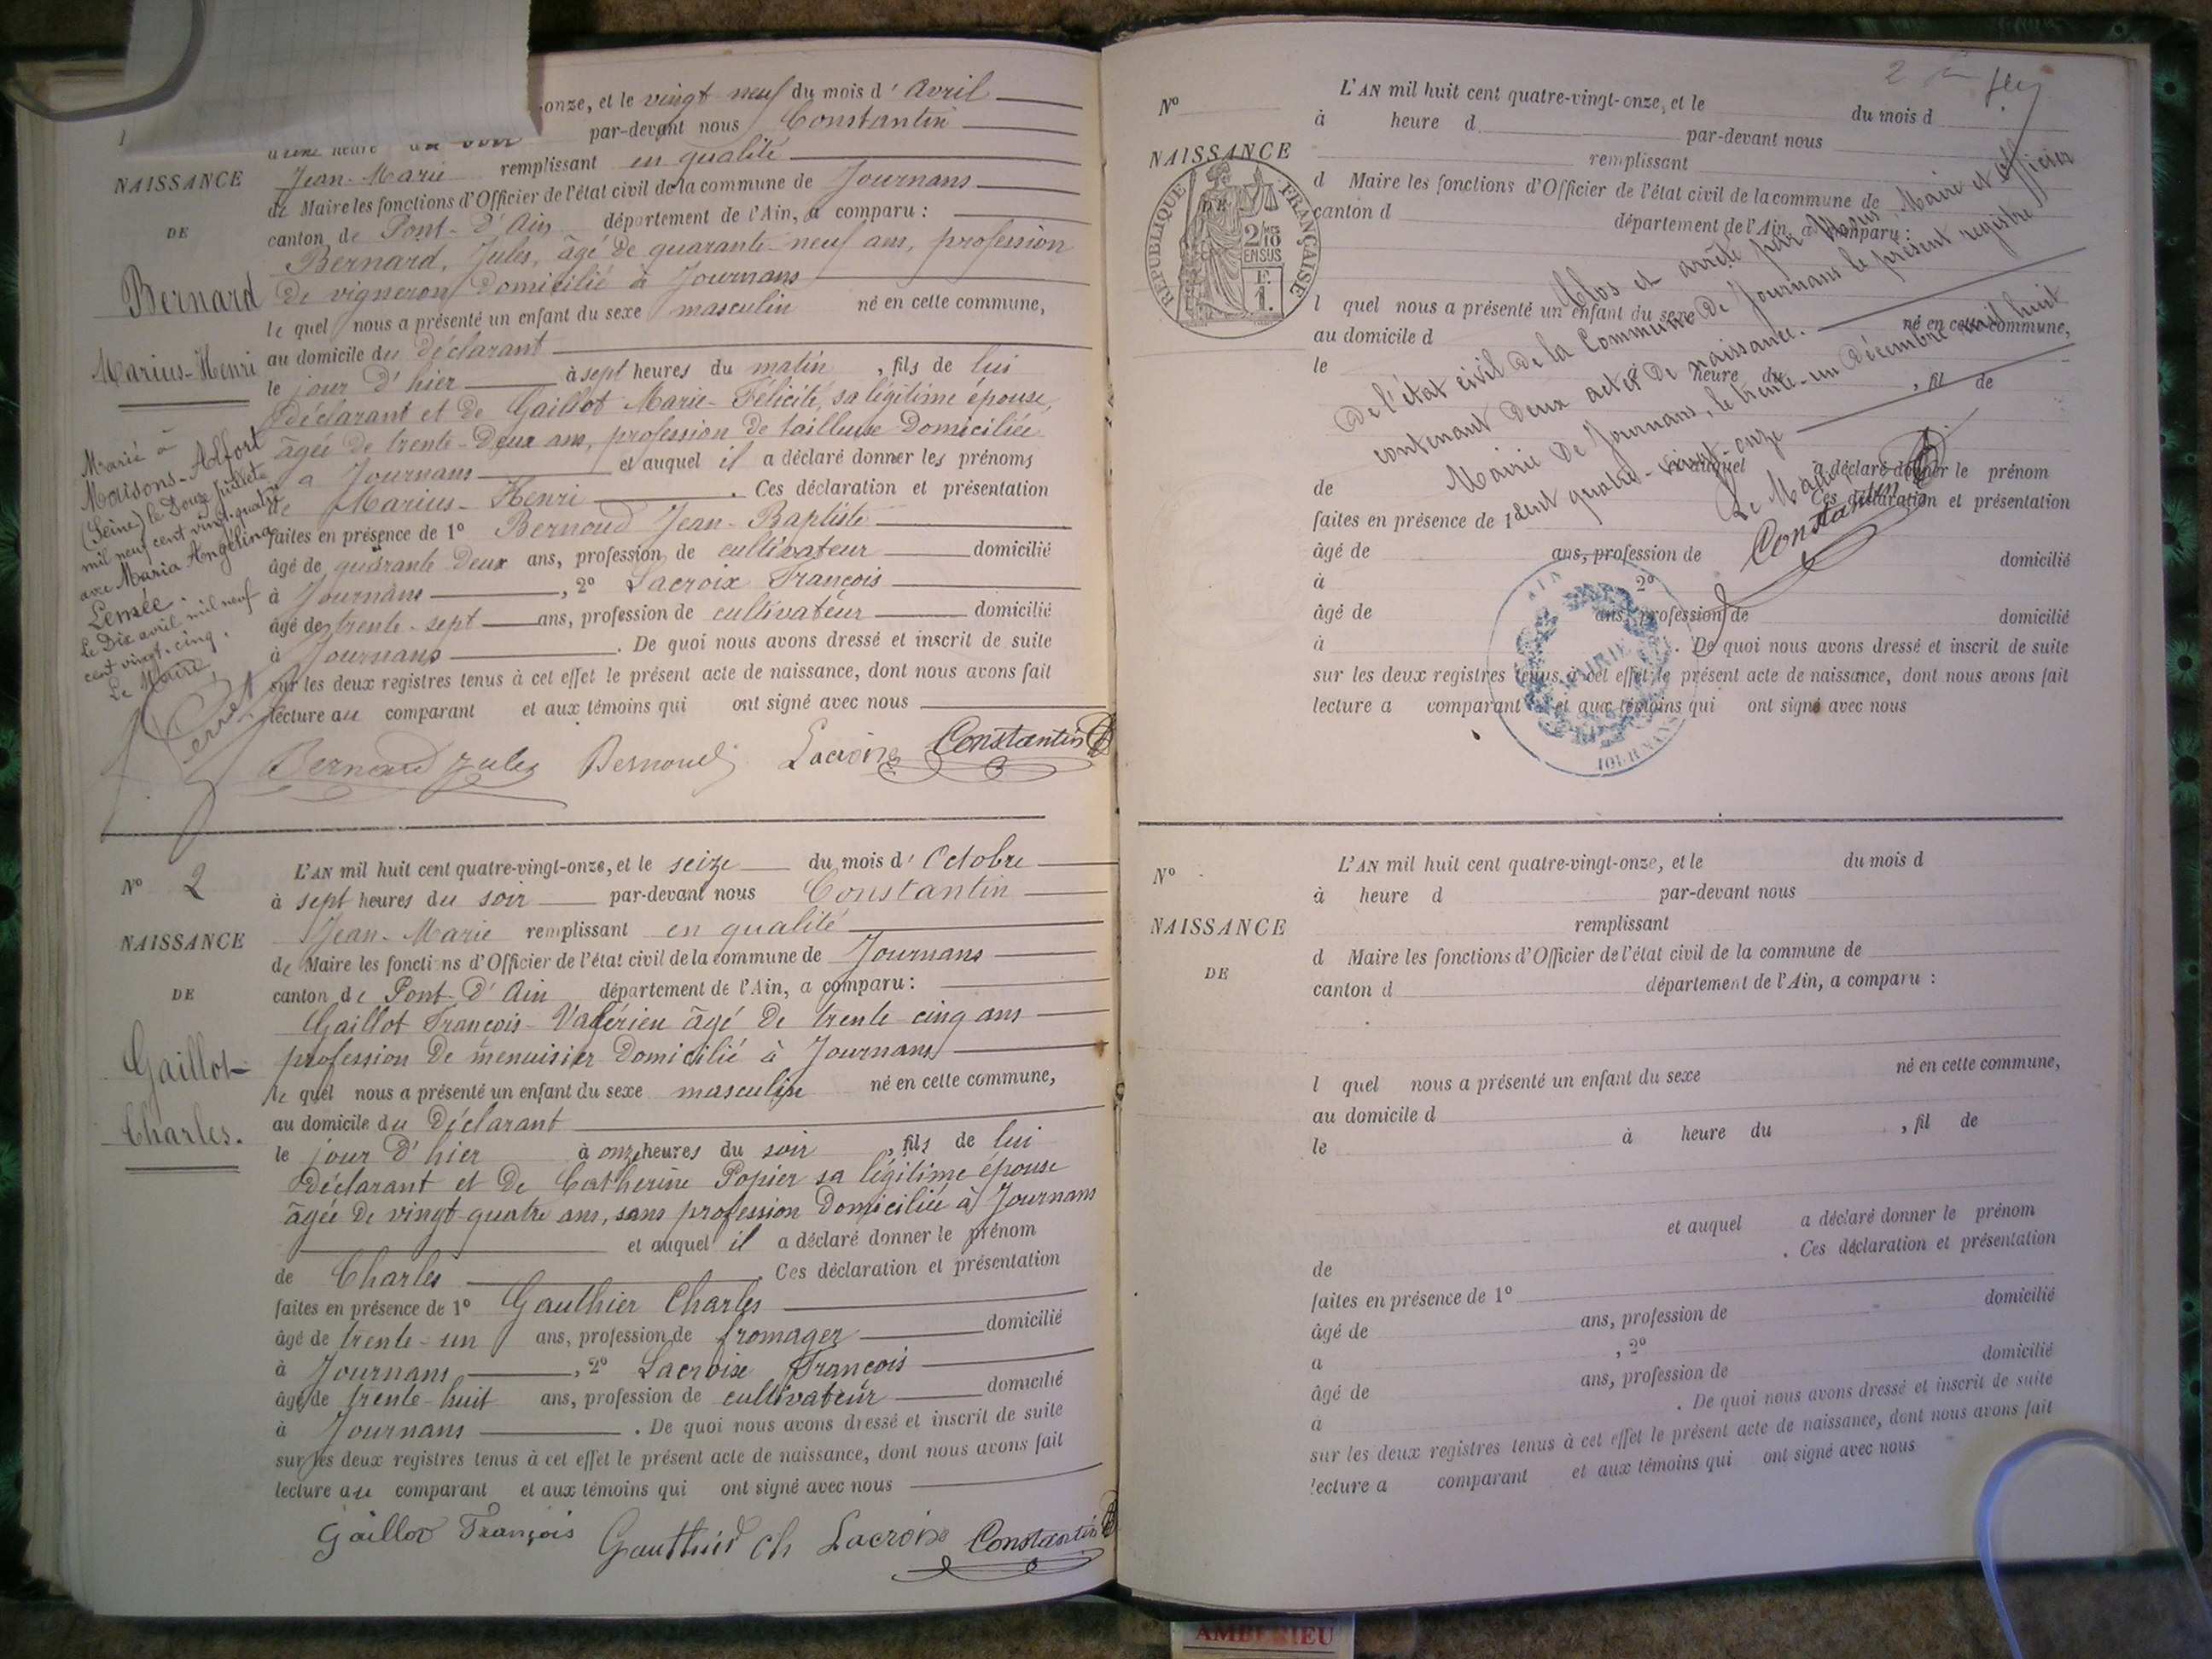 onze, et le vingt neuf du mois d'Avril
par-devant nous Constantin
Jean-Marie remplissant en qualité
NAISSANCE
de Maire les fonctions d'Officier de l'état civil de la commune de Journans
DE
canton de Pont-d'Ain département de l'Ain, a comparu :
Bernard, Jules, âgé de quarante-neuf ans, profession
de vigneron domicilié à Journans
Bernard
le quel nous a présenté un enfant du sexe masculin né en cette commune,
au domicile du déclarant
Marius-Henri
le jour d'hier à sept heures du matin, fils de lui
déclarant et de Gaillot Marie-Félicité, sa légitime épouse,
âgée de trente-deux ans, profession de tailleuse domiciliée
à Journans et auquel il a déclaré donner les prénoms
de Marius-Henri. Ces déclaration et présentation
faites en présence de 1º Bernoud Jean-Baptiste
âgé de quarante deux ans, profession de cultivateur domicilié
à Journans, 2º Lacroix François
âgé de trente-sept ans, profession de cultivateur domicilié
à Journans. De quoi nous avons dressé et inscrit de suite
sur les deux registres tenus à cet effet le présent acte de naissance, dont nous avons fait
lecture au comparant et aux témoins qui ont signé avec nous
Marié à
Maisons-Alfort
(Seine) le Douze Juillet
mil neuf cent vingt-quatre
avec Maria Angélina
Lemée.
Le Dix avril mil neuf
cent vingt-cinq.
Le Maire,
Perret
Bernard Jules Bernoud Lacroix Constantin
Nº 2
L'AN mil huit cent quatre-vingt-onze, et le seize du mois d'Octobre
à sept heures du soir par-devant nous Constantin
Jean-Marie remplissant en qualité
NAISSANCE
de Maire les fonctions d'Officier de l'état civil de la commune de Journans
DE
canton de Pont-d'Ain département de l'Ain, a comparu :
Gaillot François-Valérien âgé de trente-cinq ans
profession de menuisier domicilié à Journans
Gaillot
le quel nous a présenté un enfant du sexe masculin né en cette commune,
au domicile du déclarant
Charles.
le jour d'hier à onze heures du soir, fils de lui
déclarant et de Catherine Popier sa légitime épouse
âgée de vingt-quatre ans, sans profession domiciliée à Journans
et auquel il a déclaré donner le prénom
de Charles. Ces déclaration et présentation
faites en présence de 1º Gauthier Charles
âgé de trente-un ans, profession de fromager domicilié
à Journans, 2º Lacroix François
âgé de trente-huit ans, profession de cultivateur domicilié
à Journans. De quoi nous avons dressé et inscrit de suite
sur les deux registres tenus à cet effet le présent acte de naissance, dont nous avons fait
lecture au comparant et aux témoins qui ont signé avec nous
Gaillot François Gauthier Ch Lacroix Constantin
2
Nº
L'AN mil huit cent quatre-vingt-onze, et le du mois d
à heure d par-devant nous
NAISSANCE
remplissant
d Maire les fonctions d'Officier de l'état civil de la commune de
canton d département de l'Ain, a comparu :
RÉPUBLIQUE FRANÇAISE
2/10 EN SUS
F. 1.
l quel nous a présenté un enfant du sexe né en cette commune,
au domicile d
le heure du, fil de
auquel a déclaré donner le prénom
de Ces déclaration et présentation
faites en présence de 1
âgé de ans, profession de domicilié
à 2º
âgé de ans, profession de domicilié
à . De quoi nous avons dressé et inscrit de suite
sur les deux registres tenus à cet effet le présent acte de naissance, dont nous avons fait
lecture a comparant et aux témoins qui ont signé avec nous
Clos et arrêté par Nous, Maire et officier
de l'état civil de la Commune de Journans le présent registre
contenant deux actes de naissance.
Mairie de Journans, le trente-un décembre mil huit
cent quatre-vingt-onze
Le Maire,
Constantin
AIN
MAIRIE
JOURNANS
Nº
L'AN mil huit cent quatre-vingt-onze, et le du mois d
à heure d par-devant nous
NAISSANCE
remplissant
d Maire les fonctions d'Officier de l'état civil de la commune de
DE
canton d département de l'Ain, a comparu :
l quel nous a présenté un enfant du sexe né en cette commune,
au domicile d
le à heure du, fil de
et auquel a déclaré donner le prénom
de . Ces déclaration et présentation
faites en présence de 1º
âgé de ans, profession de domicilié
a , 2º
âgé de ans, profession de domicilié
à . De quoi nous avons dressé et inscrit de suite
sur les deux registres tenus à cet effet le présent acte de naissance, dont nous avons fait
lecture a comparant et aux témoins qui ont signé avec nous
AMBERIEU